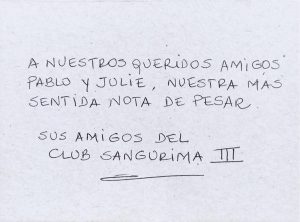 A NUESTROS QUERIDOS AMIGOS
PABLO Y JULIE, NUESTRA MÁS
SENTIDA NOTA DE PESAR.
SUS AMIGOS DEL
CLUB SANGURIMA III